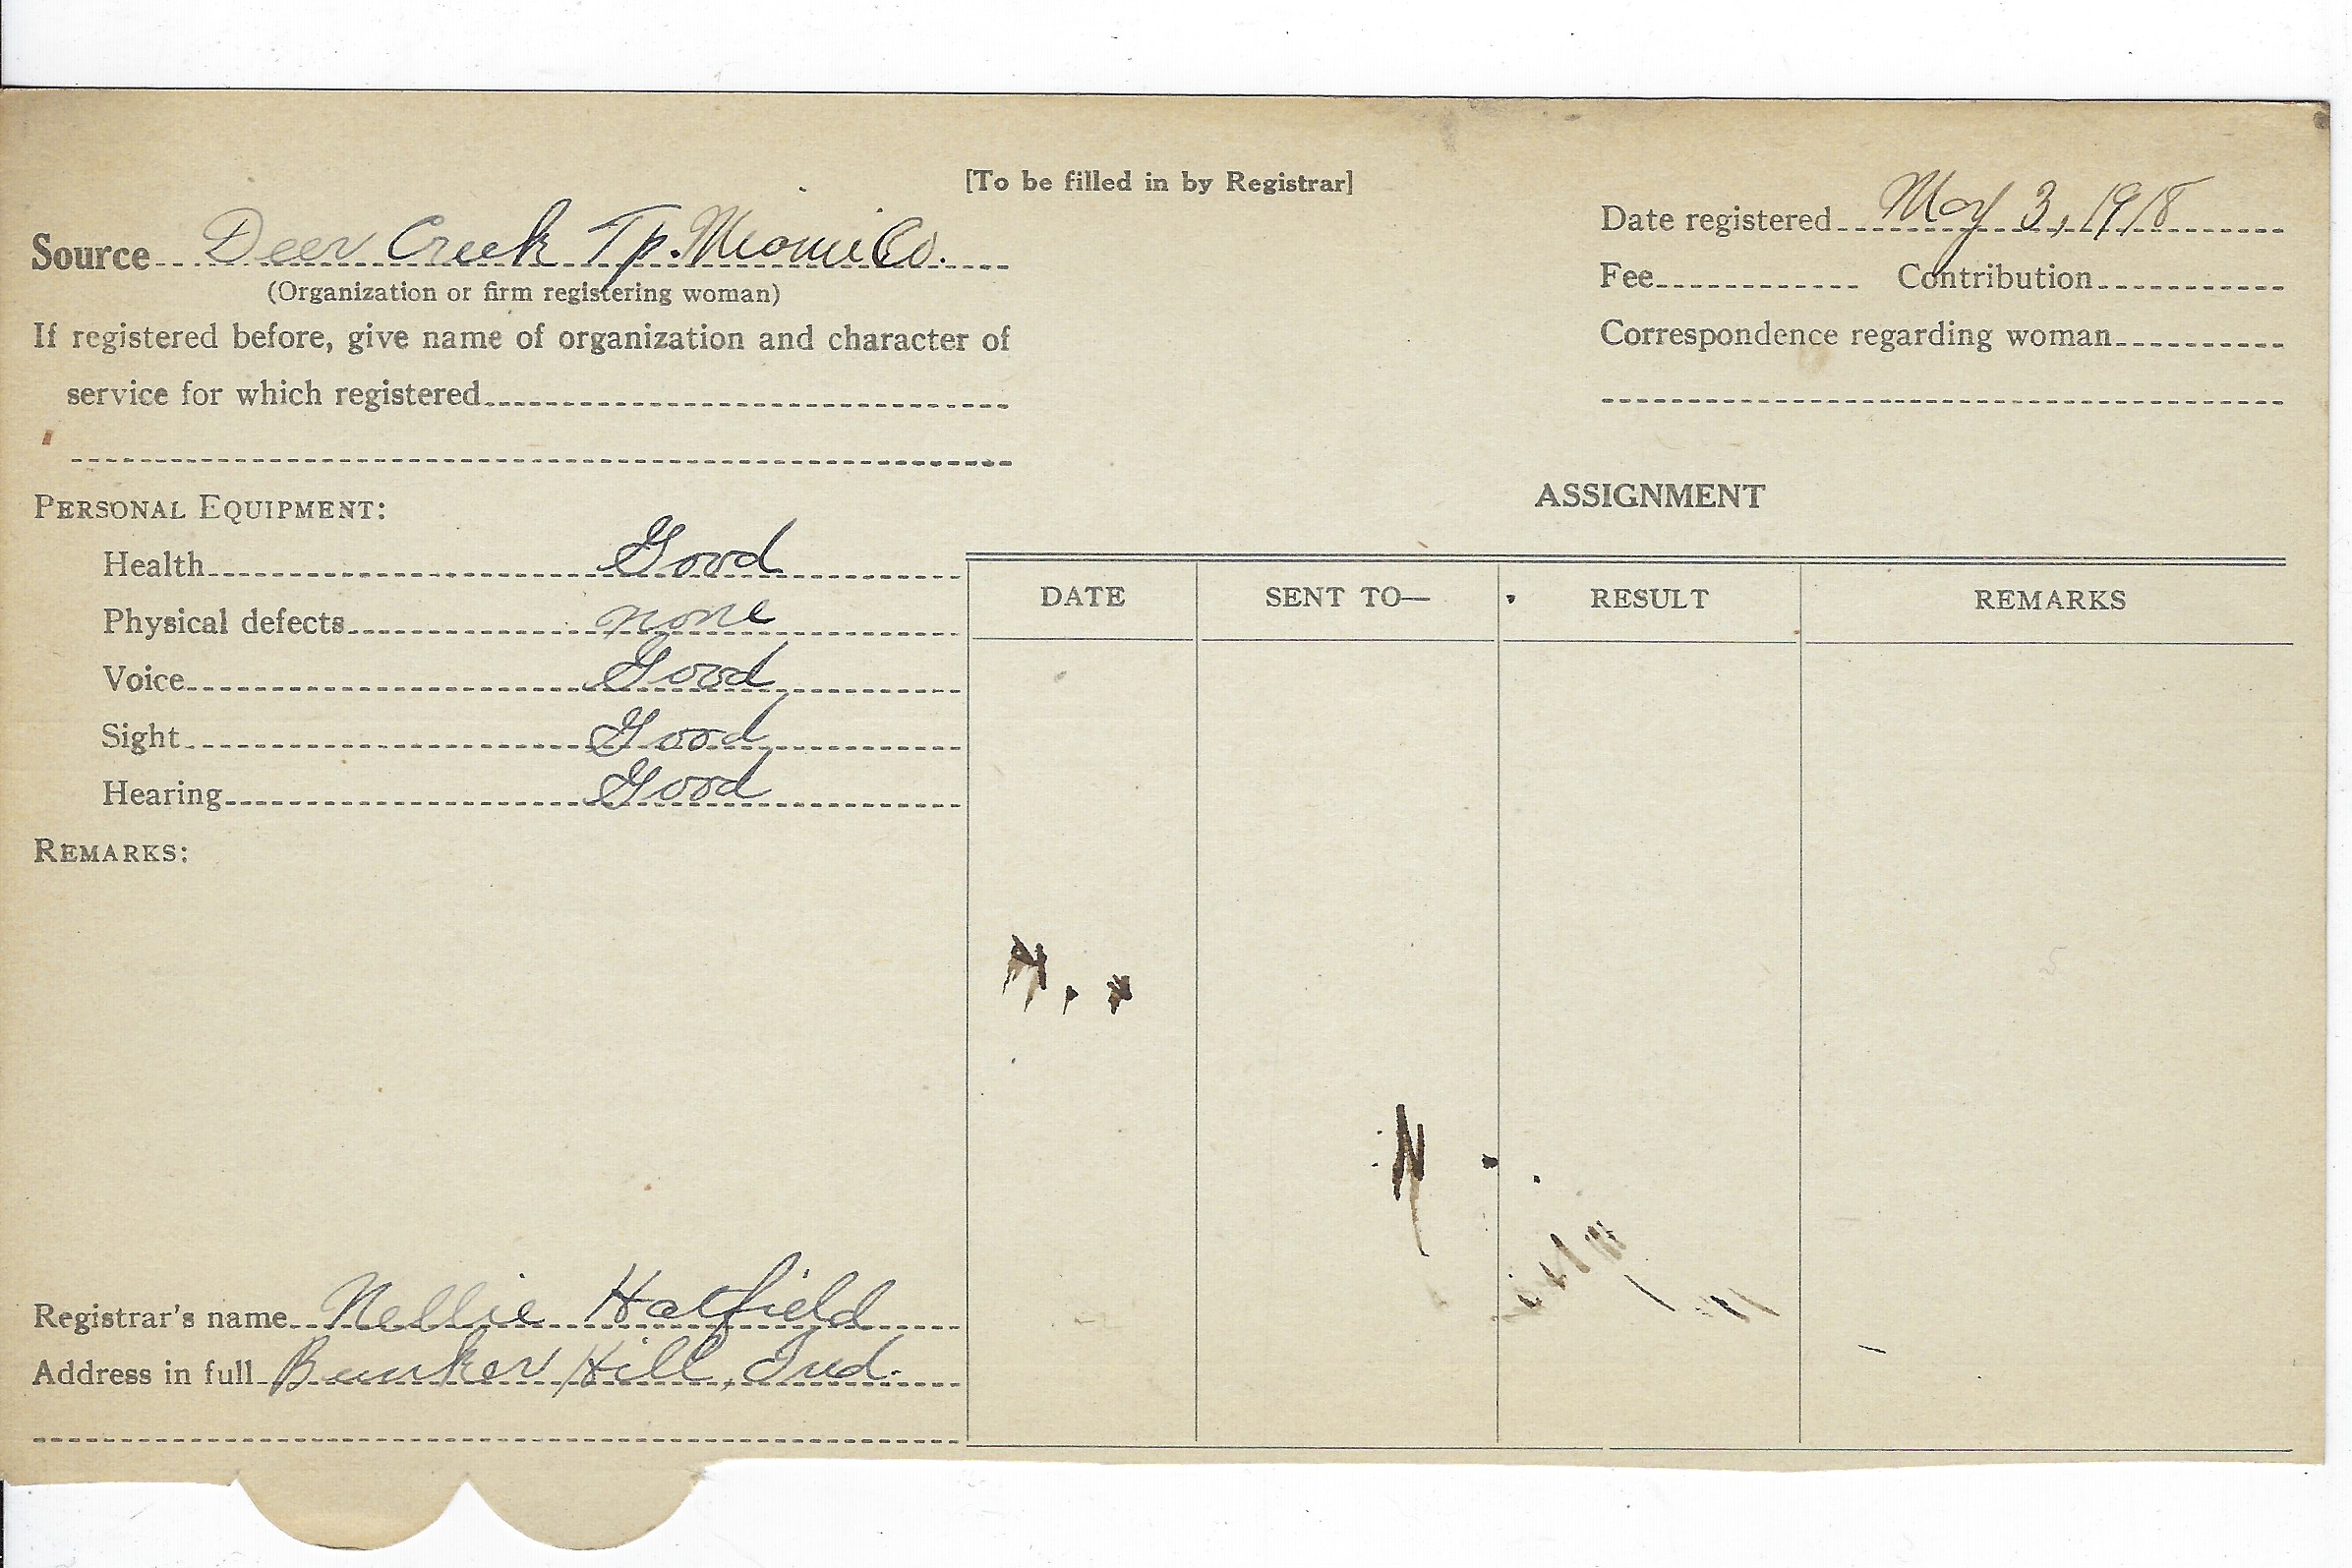 [To be filled in by Registrar]
Source Deer Creek Tp. Miami Co.
(Organization or firm registering woman)
If registered before, give name of organization and character of
service for which registered
Date registered May 3, 1918
Fee Contribution
Correspondence regarding woman
PERSONAL EQUIPMENT:
Health Good
Physical defects none
Voice Good
Sight Good
Hearing Good
REMARKS:
ASSIGNMENT
DATE SENT TO— RESULT REMARKS
Registrar's name Nellie Hatfield
Address in full Bunker Hill, Ind.